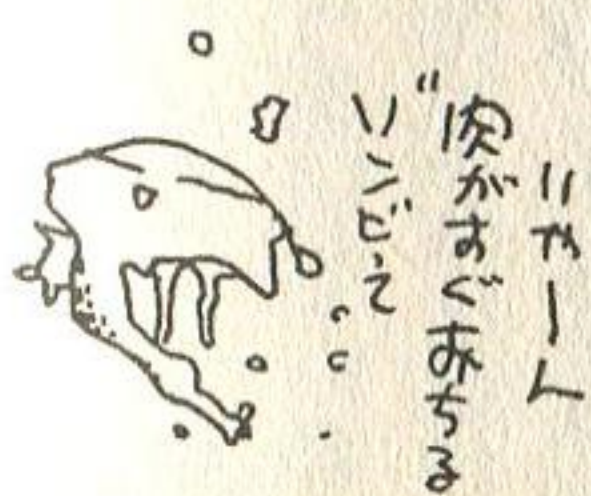 いやーん
肉がすぐおちる
ゾンビって